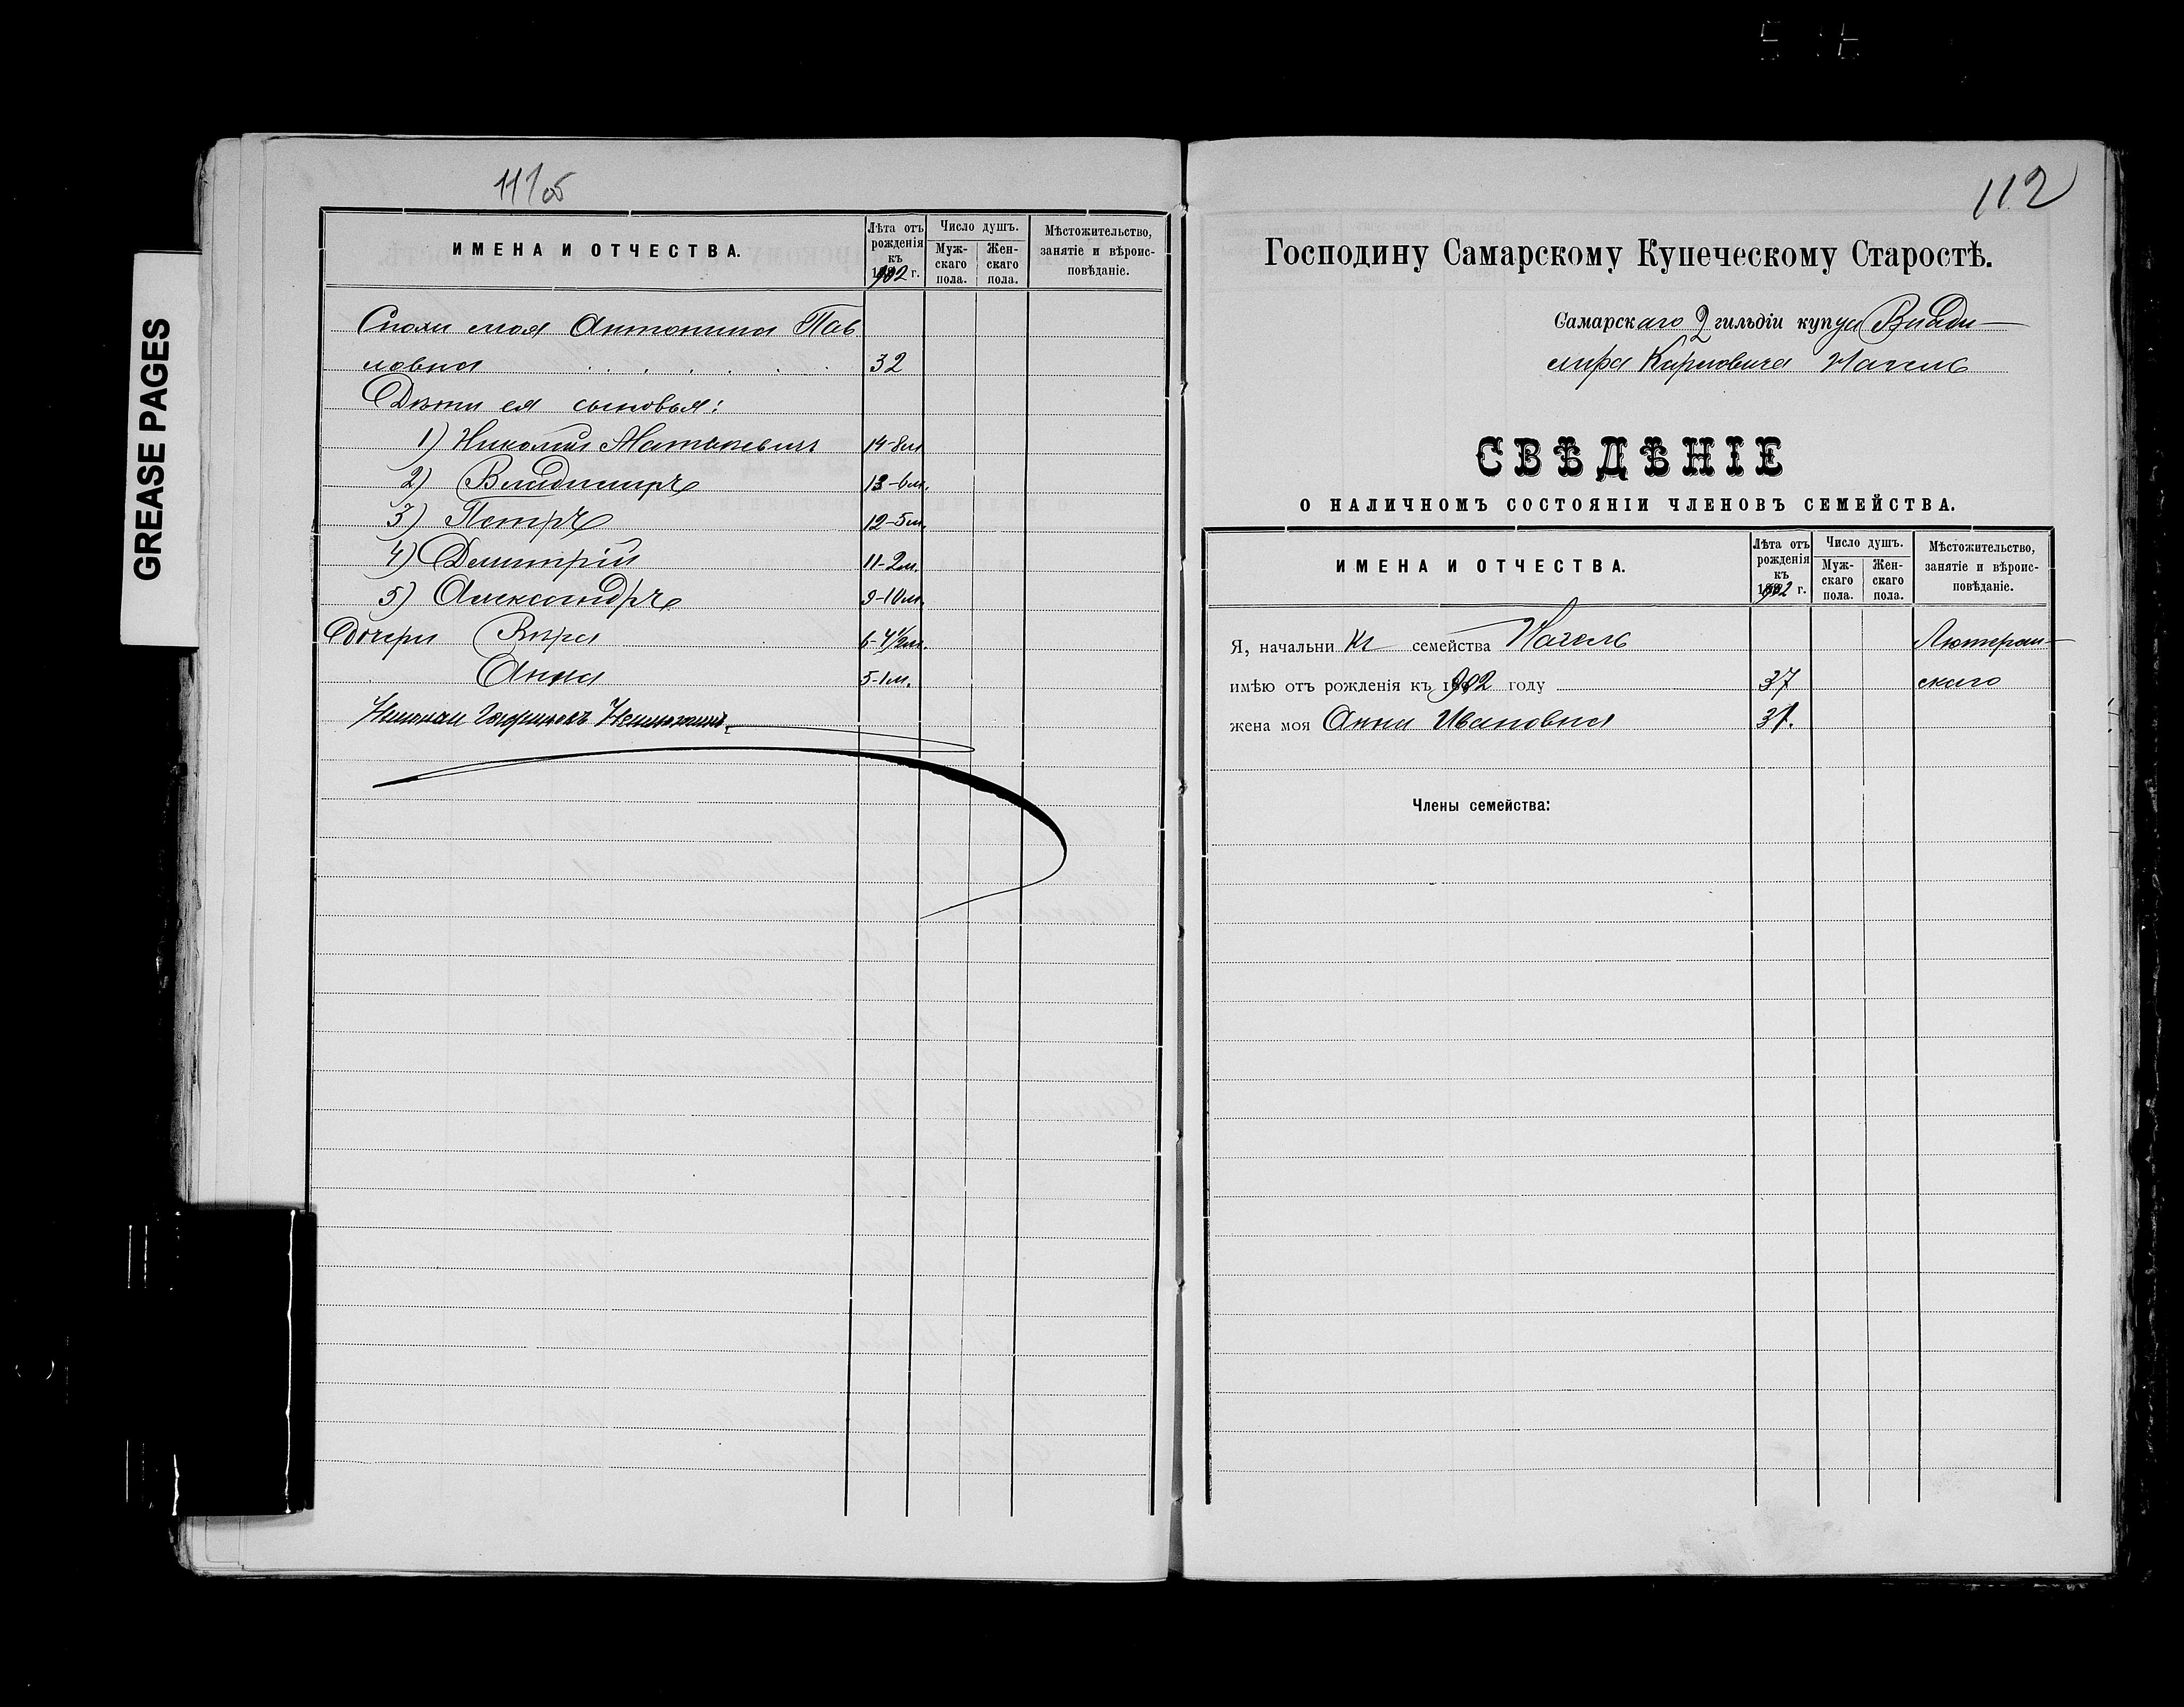 GREASE PAGES
111об
ИМЕНА И ОТЧЕСТВА.
Лѣта отъ рожденія къ 1902 г.
Число душъ.
Мужскаго пола.
Женскаго пола.
Мѣстожительство, занятіе и вѣроисповѣданіе.
Сноха моя Антонина Пав
ловна 32
Дѣти ея сыновья:
1) Николай Матвѣевичъ 14-8м
2) Владиміръ 13-6м.
3) Петръ 12-5м.
4) Димитрій 11-2м.
5) Александръ 9-10м.
Дочери Вѣра 6-4½м.
Анна 5-1м.
112
Господину Самарскому Купеческому Старостѣ.
Самарскаго 2 гильдіи купца Влади-
мира Карловича Нагель
СВѢДѢНІЕ
О НАЛИЧНОМЪ СОСТОЯНІИ ЧЛЕНОВЪ СЕМЕЙСТВА.
ИМЕНА И ОТЧЕСТВА.
Лѣта отъ рожденія къ 1902 г.
Число душъ.
Мужскаго пола.
Женскаго пола.
Мѣстожительство, занятіе и вѣроисповѣданіе.
Я, начальникъ семейства Нагель Лютеран-
имѣю отъ рожденія къ 1902 году 37 скаго
жена моя Анна Ивановна 31.
Члены семейства: